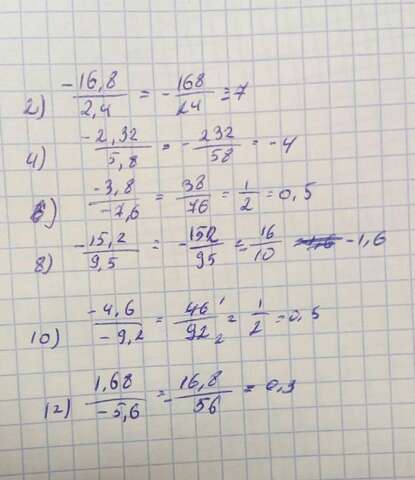 2) -16,8/2,4 = -168/24 = 7
4) -2,32/5,8 = -232/58 = -4
6) -3,8/-7,6 = 38/76 = 1/2 = 0,5
8) -15,2/9,5 = -152/95 = 16/10 -1,6
10) -4,6/-9,2 = 46 1/92 2 = 1/2 = 0,5
12) 1,68/-5,6 = -16,8/56 = 0,3